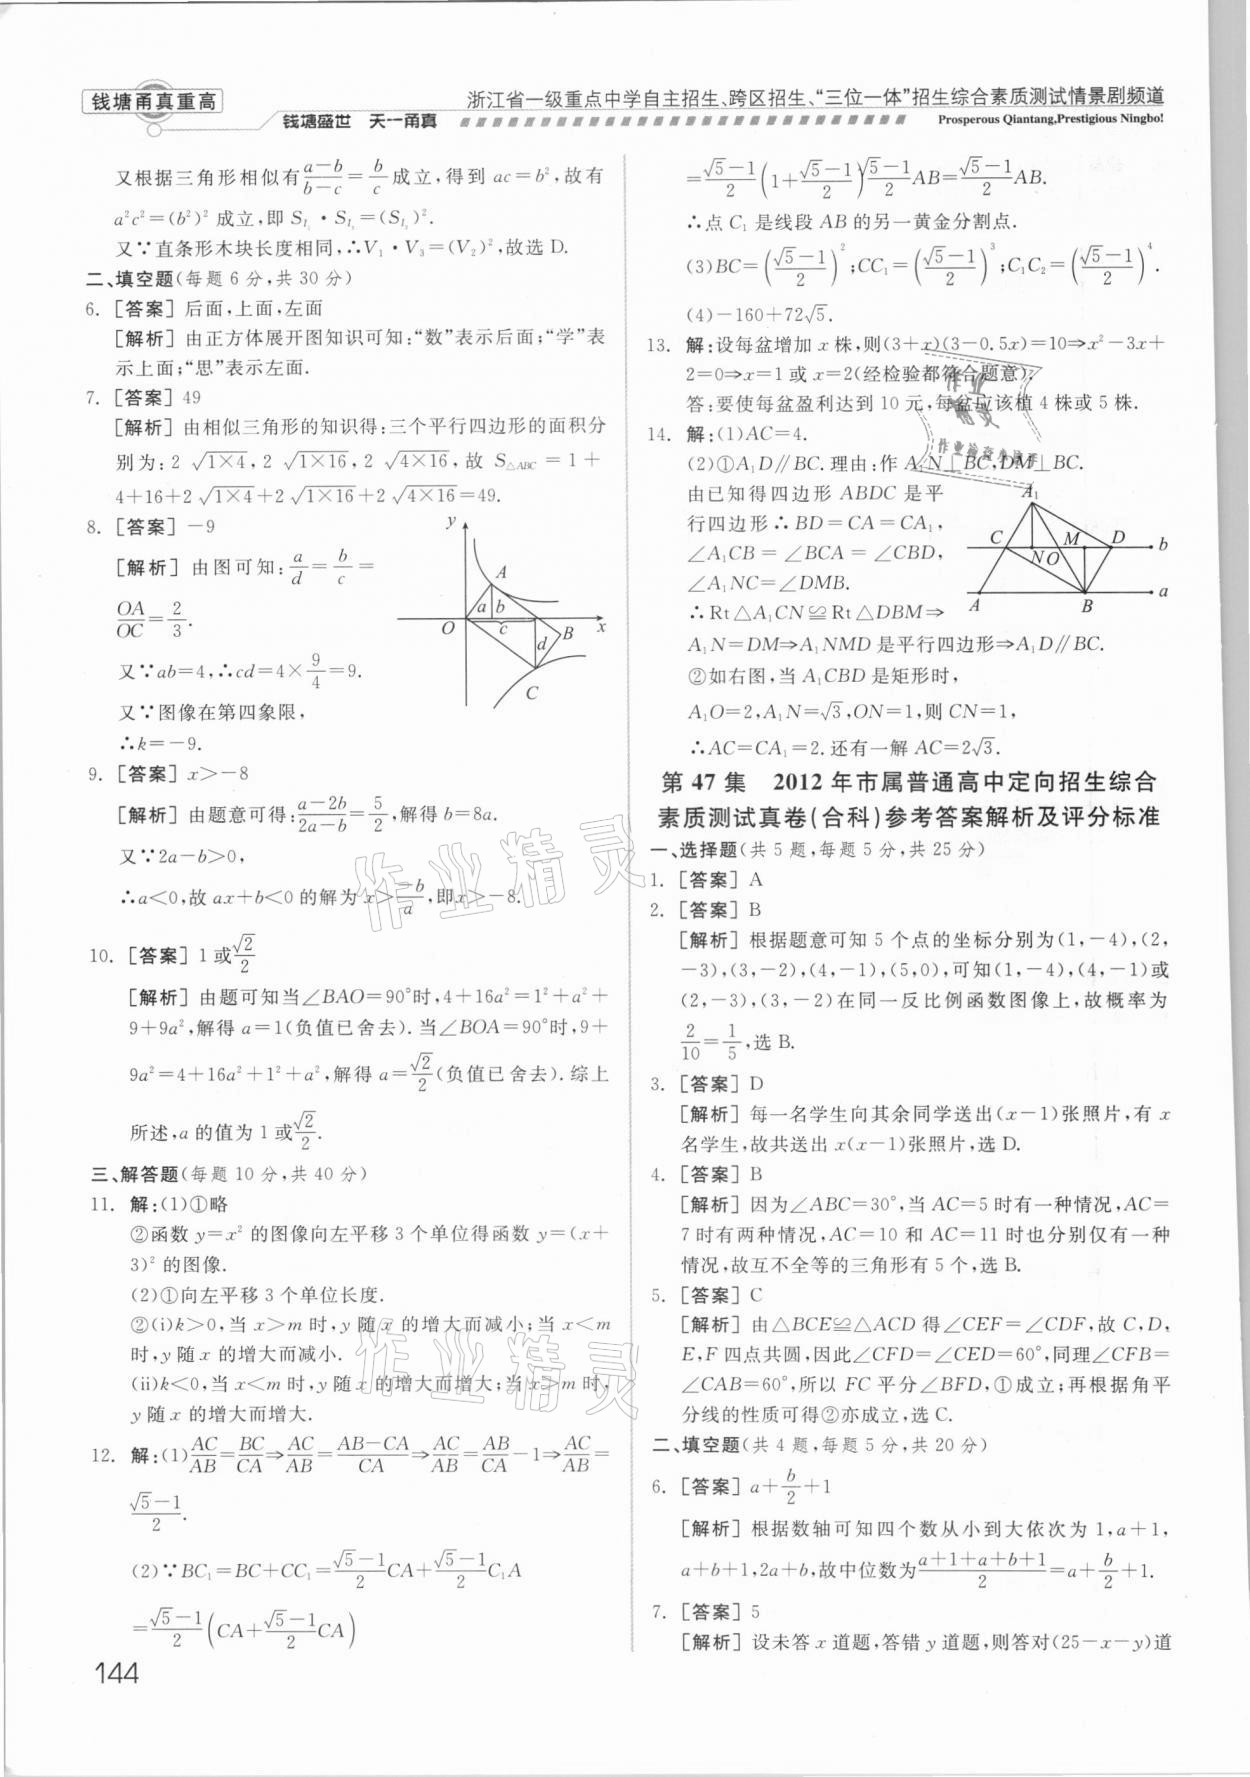 钱塘甬真重高
钱塘盛世 天一甬真
浙江省一级重点中学自主招生、跨区招生、“三位一体”招生综合素质测试情景剧频道
Prosperous Qiantang,Prestigious Ningbo!
又根据三角形相似有(a−b)/(b−c)=b/c成立,得到 ac=b²,故有
a²c²=(b²)² 成立,即 S_{I₁}·S_{I₃}=(S_{I₂})².
又∵直条形木块长度相同,∴V₁·V₃=(V₂)²,故选 D.
二、填空题(每题 6 分,共 30 分)
6. [答案] 后面,上面,左面
[解析] 由正方体展开图知识可知:“数”表示后面;“学”表
示上面;“思”表示左面.
7. [答案] 49
[解析] 由相似三角形的知识得:三个平行四边形的面积分
别为:2√(1×4),2√(1×16),2√(4×16),故 S△ABC=1+
4+16+2√(1×4)+2√(1×16)+2√(4×16)=49.
8. [答案] −9
[解析] 由图可知:a/d=b/c=
OA/OC=2/3.
又∵ab=4,∴cd=4×9/4=9.
又∵图像在第四象限,
∴k=−9.
y
A
a b
O c x
d B
C
9. [答案] x>−8
[解析] 由题意可得:(a−2b)/(2a−b)=5/2,解得:b=8a.
又∵2a−b>0,
∴a<0,故 ax+b<0 的解为 x>−b/a,即x>−8.
10. [答案] 1 或√2/2
[解析] 由题可知当∠BAO=90°时,4+16a²=1²+a²+
9+9a²,解得 a=1(负值已舍去).当∠BOA=90°时,9+
9a²=4+16a²+1²+a²,解得 a=√2/2(负值已舍去).综上
所述,a 的值为 1 或√2/2.
三、解答题(每题 10 分,共 40 分)
11. 解:(1)①略
②函数 y=x² 的图像向左平移 3 个单位得函数 y=(x+
3)² 的图像.
(2)①向左平移 3 个单位长度.
②(i)k>0,当 x>m 时,y 随 x 的增大而减小;当 x<m
时,y 随 x 的增大而减小.
(ii)k<0,当 x<m 时,y 随 x 的增大而增大;当 x>m 时,
y 随 x 的增大而增大.
12. 解:(1)AC/AB=BC/CA⇒AC/AB=(AB−CA)/CA⇒AC/AB=AB/CA−1⇒AC/AB=
(√5−1)/2.
(2)∵BC₁=BC+CC₁=(√5−1)/2CA+(√5−1)/2C₁A
=(√5−1)/2(CA+(√5−1)/2CA)
144
=(√5−1)/2(1+(√5−1)/2)(√5−1)/2AB=(√5−1)/2AB.
∴点 C₁ 是线段 AB 的另一黄金分割点.
(3)BC=((√5−1)/2)²;CC₁=((√5−1)/2)³;C₁C₂=((√5−1)/2)⁴.
(4)−160+72√5.
13. 解:设每盆增加 x 株,则(3+x)(3−0.5x)=10⇒x²−3x+
2=0⇒x=1 或 x=2(经检验都符合题意);
答:要使每盆盈利达到 10 元,每盆应该植 4 株或 5 株.
14. 解:(1)AC=4.
(2)①A₁D∥BC.理由:作 A₁N⊥BC,DM⊥BC.
由已知得四边形 ABDC 是平
行四边形∴BD=CA=CA₁,
∠A₁CB=∠BCA=∠CBD,
∠A₁NC=∠DMB.
∴Rt△A₁CN≌Rt△DBM⇒
A₁N=DM⇒A₁NMD 是平行四边形⇒A₁D∥BC.
A₁
C M D b
N O
A B a
②如右图,当 A₁CBD 是矩形时,
A₁O=2,A₁N=√3,ON=1,则 CN=1,
∴AC=CA₁=2.还有一解 AC=2√3.
第 47 集 2012 年市属普通高中定向招生综合
素质测试真卷(合科)参考答案解析及评分标准
一、选择题(共 5 题,每题 5 分,共 25 分)
1. [答案] A
2. [答案] B
[解析] 根据题意可知 5 个点的坐标分别为(1,−4),(2,
−3),(3,−2),(4,−1),(5,0),可知(1,−4),(4,−1)或
(2,−3),(3,−2)在同一反比例函数图像上,故概率为
2/10=1/5,选 B.
3. [答案] D
[解析] 每一名学生向其余同学送出(x−1)张照片,有 x
名学生,故共送出 x(x−1)张照片,选 D.
4. [答案] B
[解析] 因为∠ABC=30°,当 AC=5 时有一种情况,AC=
7 时有两种情况,AC=10 和 AC=11 时也分别仅有一种
情况,故互不全等的三角形有 5 个,选 B.
5. [答案] C
[解析] 由△BCE≌△ACD 得∠CEF=∠CDF,故 C,D,
E,F 四点共圆,因此∠CFD=∠CED=60°,同理∠CFB=
∠CAB=60°,所以 FC 平分∠BFD,①成立;再根据角平
分线的性质可得②亦成立,选 C.
二、填空题(共 4 题,每题 5 分,共 20 分)
6. [答案] a+b/2+1
[解析] 根据数轴可知四个数从小到大依次为 1,a+1,
a+b+1,2a+b,故中位数为(a+1+a+b+1)/2=a+b/2+1.
7. [答案] 5
[解析] 设未答 x 道题,答错 y 道题,则答对(25−x−y)道
作业精灵
作业精灵
作业
精灵